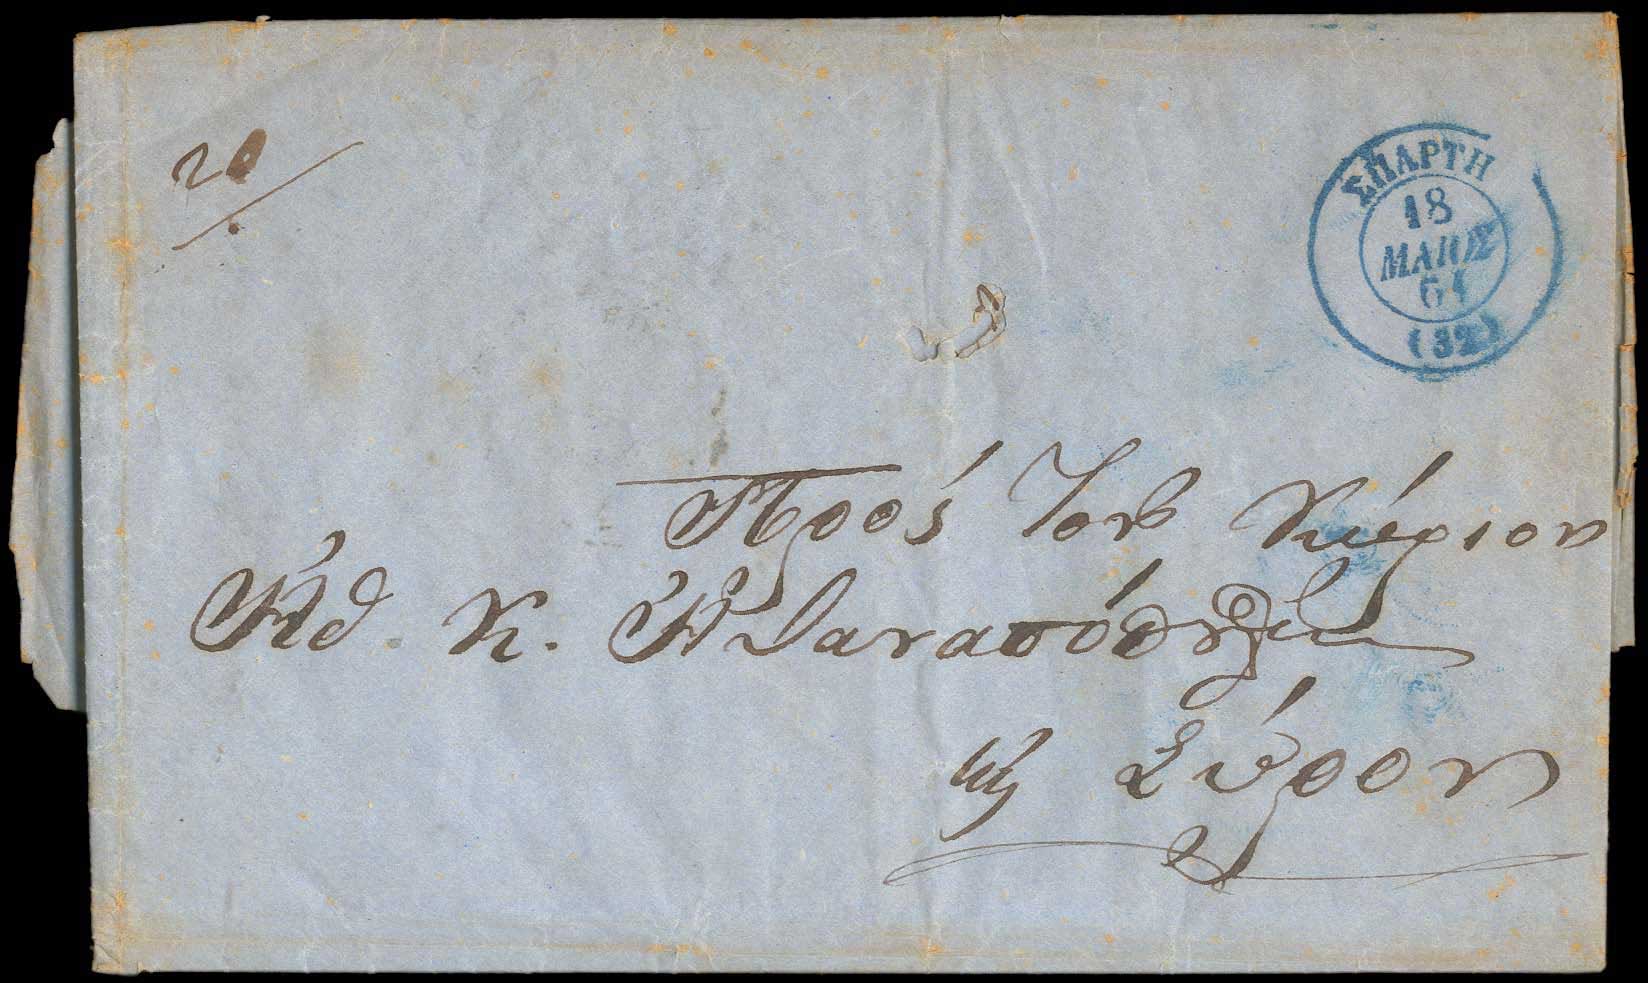 20
ΣΠΑΡΤΗ
18
ΜΑΙΟΣ
61
(32)
Πρὸς τὸν Κύριον
Ἀθ. Κ. Ἀθανασόπουλον
εἰς Σύρον